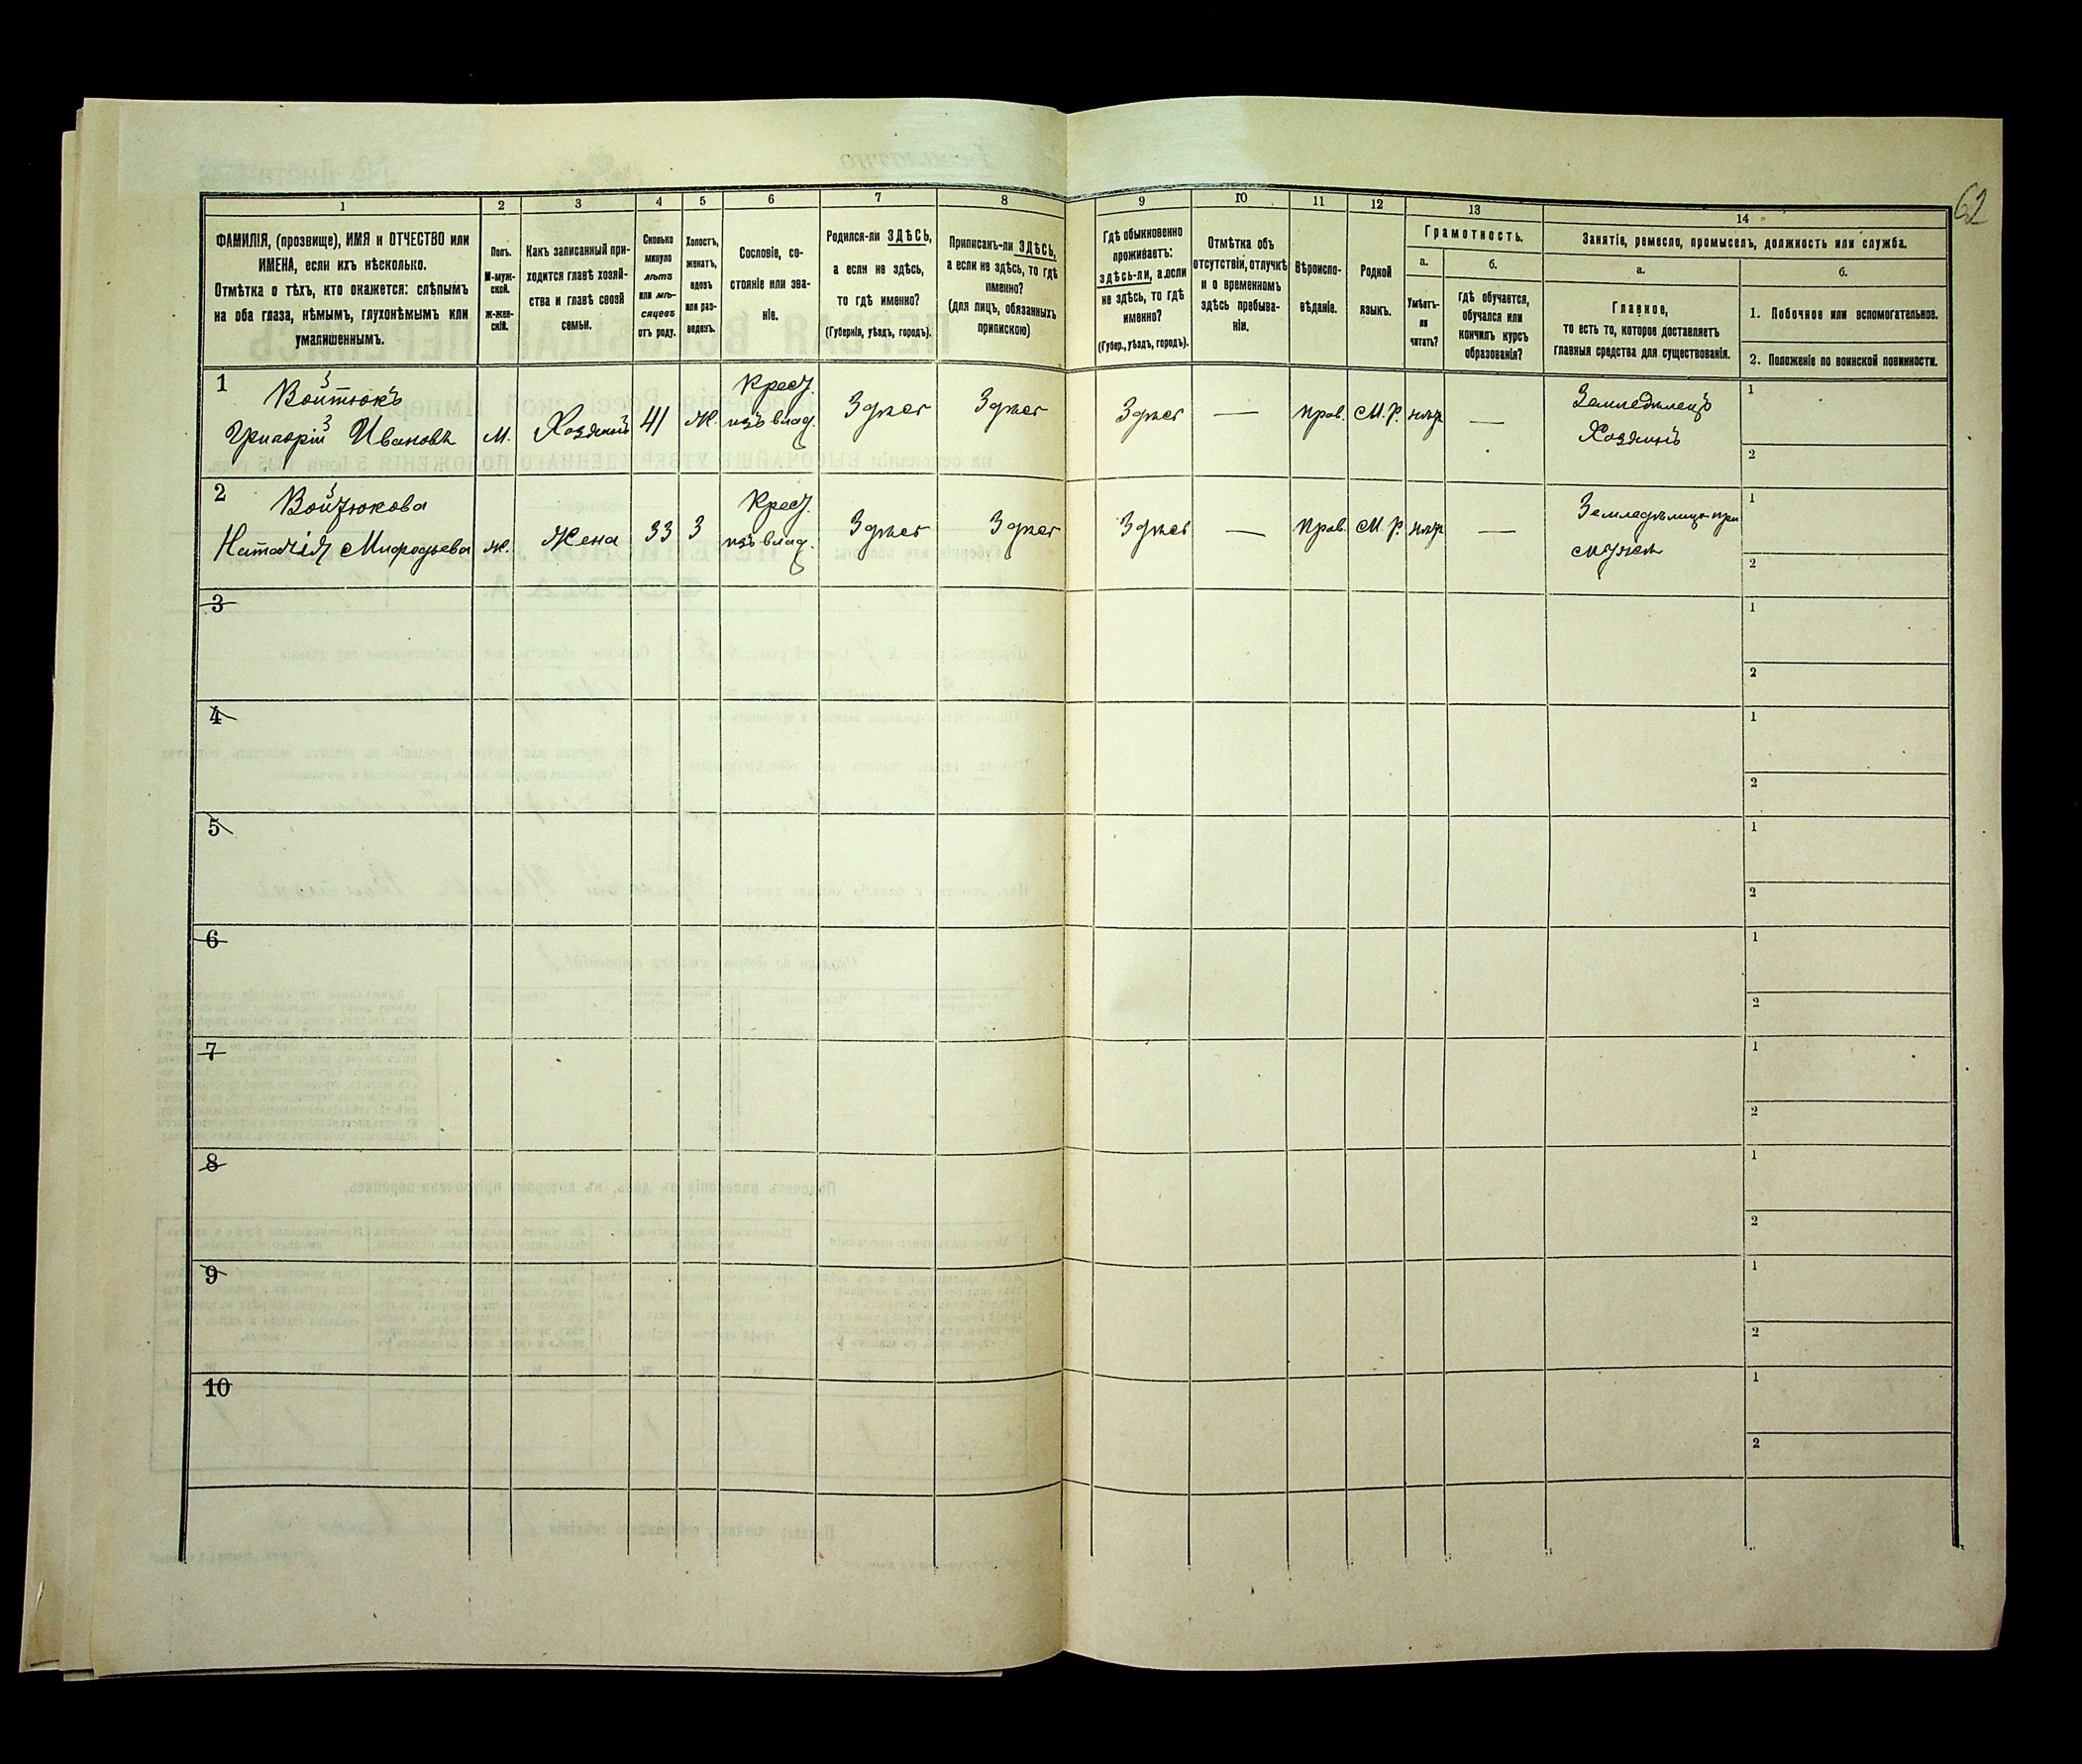 62
1
2
3
4
5
6
7
8
9
10
11
12
13
14
ФАМИЛІЯ, (прозвище), ИМЯ и ОТЧЕСТВО или
ИМЕНА, если ихъ нѣсколько.
Отмѣтка о тѣхъ, кто окажется: слѣпымъ
на оба глаза, нѣмымъ, глухонѣмымъ или
умалишеннымъ.
Полъ.
М-муж-
ской.
Ж-жен-
скій.
Какъ записанный при-
ходится главѣ хозяй-
ства и главѣ своей
семьи.
Сколько
минуло
лѣтъ
или мѣ-
сяцевъ
отъ роду.
Холостъ,
женатъ,
вдовъ
или раз-
веденъ.
Сословіе, со-
стояніе или зва-
ніе.
Родился-ли ЗДѢСЬ,
а если не здѣсь,
то гдѣ именно?
(Губернія, уѣздъ, городъ).
Приписанъ-ли ЗДѢСЬ,
а если не здѣсь, то гдѣ
именно?
(для лицъ, обязанныхъ
припискою)
Гдѣ обыкновенно
проживаетъ:
здѣсь-ли, а если
не здѣсь, то гдѣ
именно?
(Губер., уѣздъ, городъ).
Отмѣтка объ
отсутствіи, отлучкѣ
и о временномъ
здѣсь пребыва-
ніи.
Вѣроиспо-
вѣданіе.
Родной
языкъ.
Грамотность.
а.
Умѣетъ-
ли
читать?
б.
гдѣ обучается,
обучался или
кончилъ курсъ
образованія?
Занятіе, ремесло, промыселъ, должность или служба.
а.
Главное,
то есть то, которое доставляетъ
главныя средства для существованія.
б.
1. Побочное или вспомогательное.
2. Положеніе по воинской повинности.
1 Войтюкъ
Григорій Ивановъ
М. Хозяинъ 41 Ж.
Крест.
изъ влад.
Здѣсь Здѣсь Здѣсь — прав. М.Р. нѣтъ —
Земледѣлецъ
Хозяинъ
1
2
2 Войтюкова
Наталія Мифодьева
ж. Жена 33 З
Крест.
изъ влад.
Здѣсь Здѣсь Здѣсь — прав. М.Р. нѣтъ —
Земледѣлица при
мужѣ
1
2
3
1
2
4
1
2
5
1
2
6
1
2
7
1
2
8
1
2
9
1
2
10
1
2